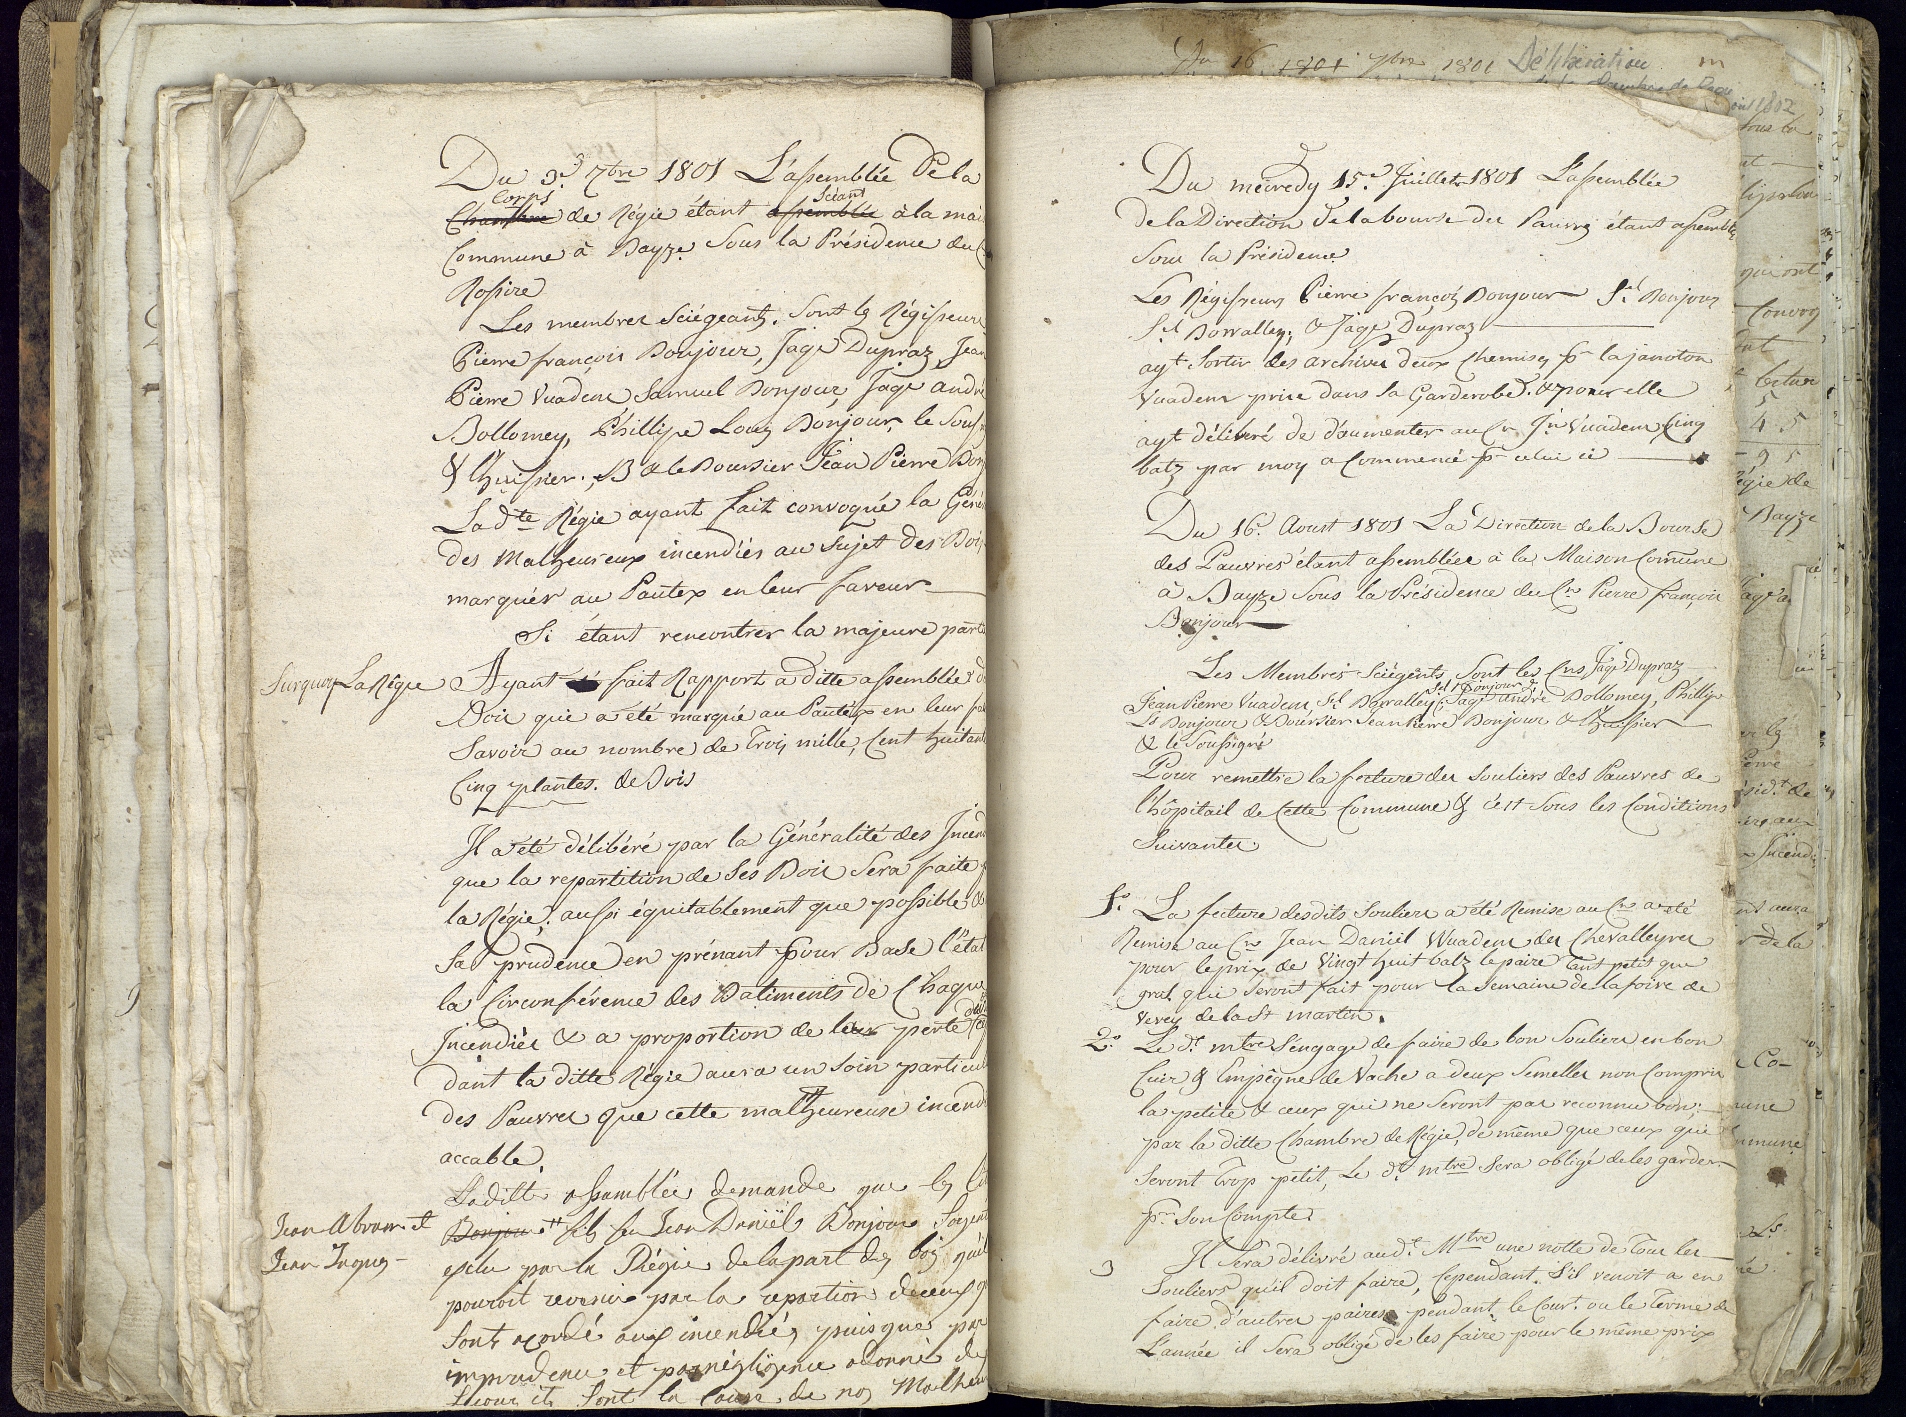 Du 3.e 7bre 1801 L'assemblée De la
Corps Séant
Chambre de Régie étant assemblée à la mai
Commune à Bayze Sous la Présidence du C
Rossire
Les membres Siégeants, Sont les Régisseurs
Pierre françois Bonjour, Jaqe Dupraz, Jean
Pierre Vuadens Samuel Bonjour, Jaqe andré
Bollomey, Phillipe Louis Bonjour, le Souss
& l'huissier. & le Boursier Jean Pierre Bonj
La dte Régie ayant fait convoqué la Géné
des Malheureux incendiés au Sujet des Bois
marqués au Pautex en leur faveur
Si étant rencontrer la majeure parti
Surquoy La Régie Ayant fait Rapport a ditte assemblée d
Bois qui a été marqué au Pautex en leur fa
Savoir au nombre de Trois mille, Cent huitante
Cinq plantes. de Bois
Il a été délibéré par la Généralité des Incend
que la repartition de Ses Bois Sera faite p
la Régie, aussi équitablement que possible &
Sa prudence en prénant pour Base l'état
la Circonférence des Batiments de Chaque
Incendiés & a proportion de leur perte
dant la ditte Régie aura un soin particul
des Pauvres que cette malheureuse incend
accable.
Laditte assemblée demande que les
Jean Abram et Bonjour fils feu Jean Daniël Bonjour Soyent
Jean Jaques exclu par la Régie de la part des bois qu'il
pouroit revenir par la repartion de ceux q
Sont acordé aux incendiés, puisque par
imprudence et par négligence a donné de
Secour ils Sont la Cause de nos Malheu
Du 16 1801 7bre 1801 Délibération
Du mécredy 15.e Juillet 1801 L'assemblée
de la Direction de la bourse des Pauvres étant assemblée
Sous la Présidence
Les Régisseurs Pierre françois Bonjour Sl Bonjour
Sl Borralley, & Jaqe Dupraz
ayt Sortir des archives deux Chemises pr la janoton
Vuadens prise dans Sa Garderobe. & pour elle
ayt délibéré de d'aumenter au Cn Jn Vuadens Cinq
batz par moy a Commencé pr celui ci
Du 16.e Aoust 1801 La Direction de la Bourse
des Pauvres étant assemblée à la Maison Comune
à Bayze Sous la Présidence du Cn Pierre françois
Bonjour
Les Membres Siégents Sont les Cns Jaqe Dupraz
Sel Bonjour
Jean Pierre Vuadens, Sl Borralley, Jaqe andré Bollomey, Phillip
Ls Bonjour & Boursier Jean Pierre Bonjour & l'huissier
& le Soussigné
Pour remettre la feiture des Souliers des Pauvres de
l'hôpitail de Cette Commune & c'est Sous les Conditions
Suivantes.
1.o La feiture desdits Souliers a été Remise au Cn a été
Remise au Cn Jean Daniel Wuadens des Chevalleyres
pour le prix de Vingt huit batz le paire Tant petit que
grat qui Seront fait pour la Semaine de la foire de
Vevey de la St martin.
2.o Le dt mtre S'engage de faire de bon Souliers en bon
Cuir & Empêgnes de Vache a deux Semelles non Compris
la petite & ceux qui ne Seront pas reconnu bon,
par la ditte Chambre de Régie, de même que ceux qui
Seront Trop petit, Le dt mtre Sera obligé de les garder
pr Son Compte.
3 Il Sera délivré au dt Mtre une notte de Tous les
Souliers qu'il doit faire, Cependant S'il venoit a en
faire d'autres paires pendant le Court. ou le Terme de
L'année il Sera obligé de les faire pour le même prix